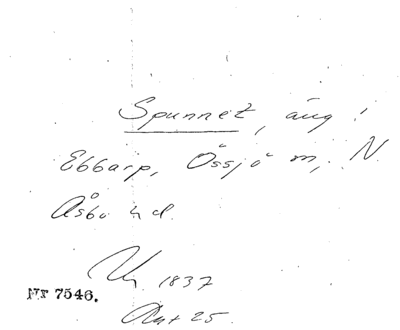 Spunnet, äng i
Ebbarp, Össjö m, N.
Åsbo hd.
1837
Nr 7546.
Akt 25.